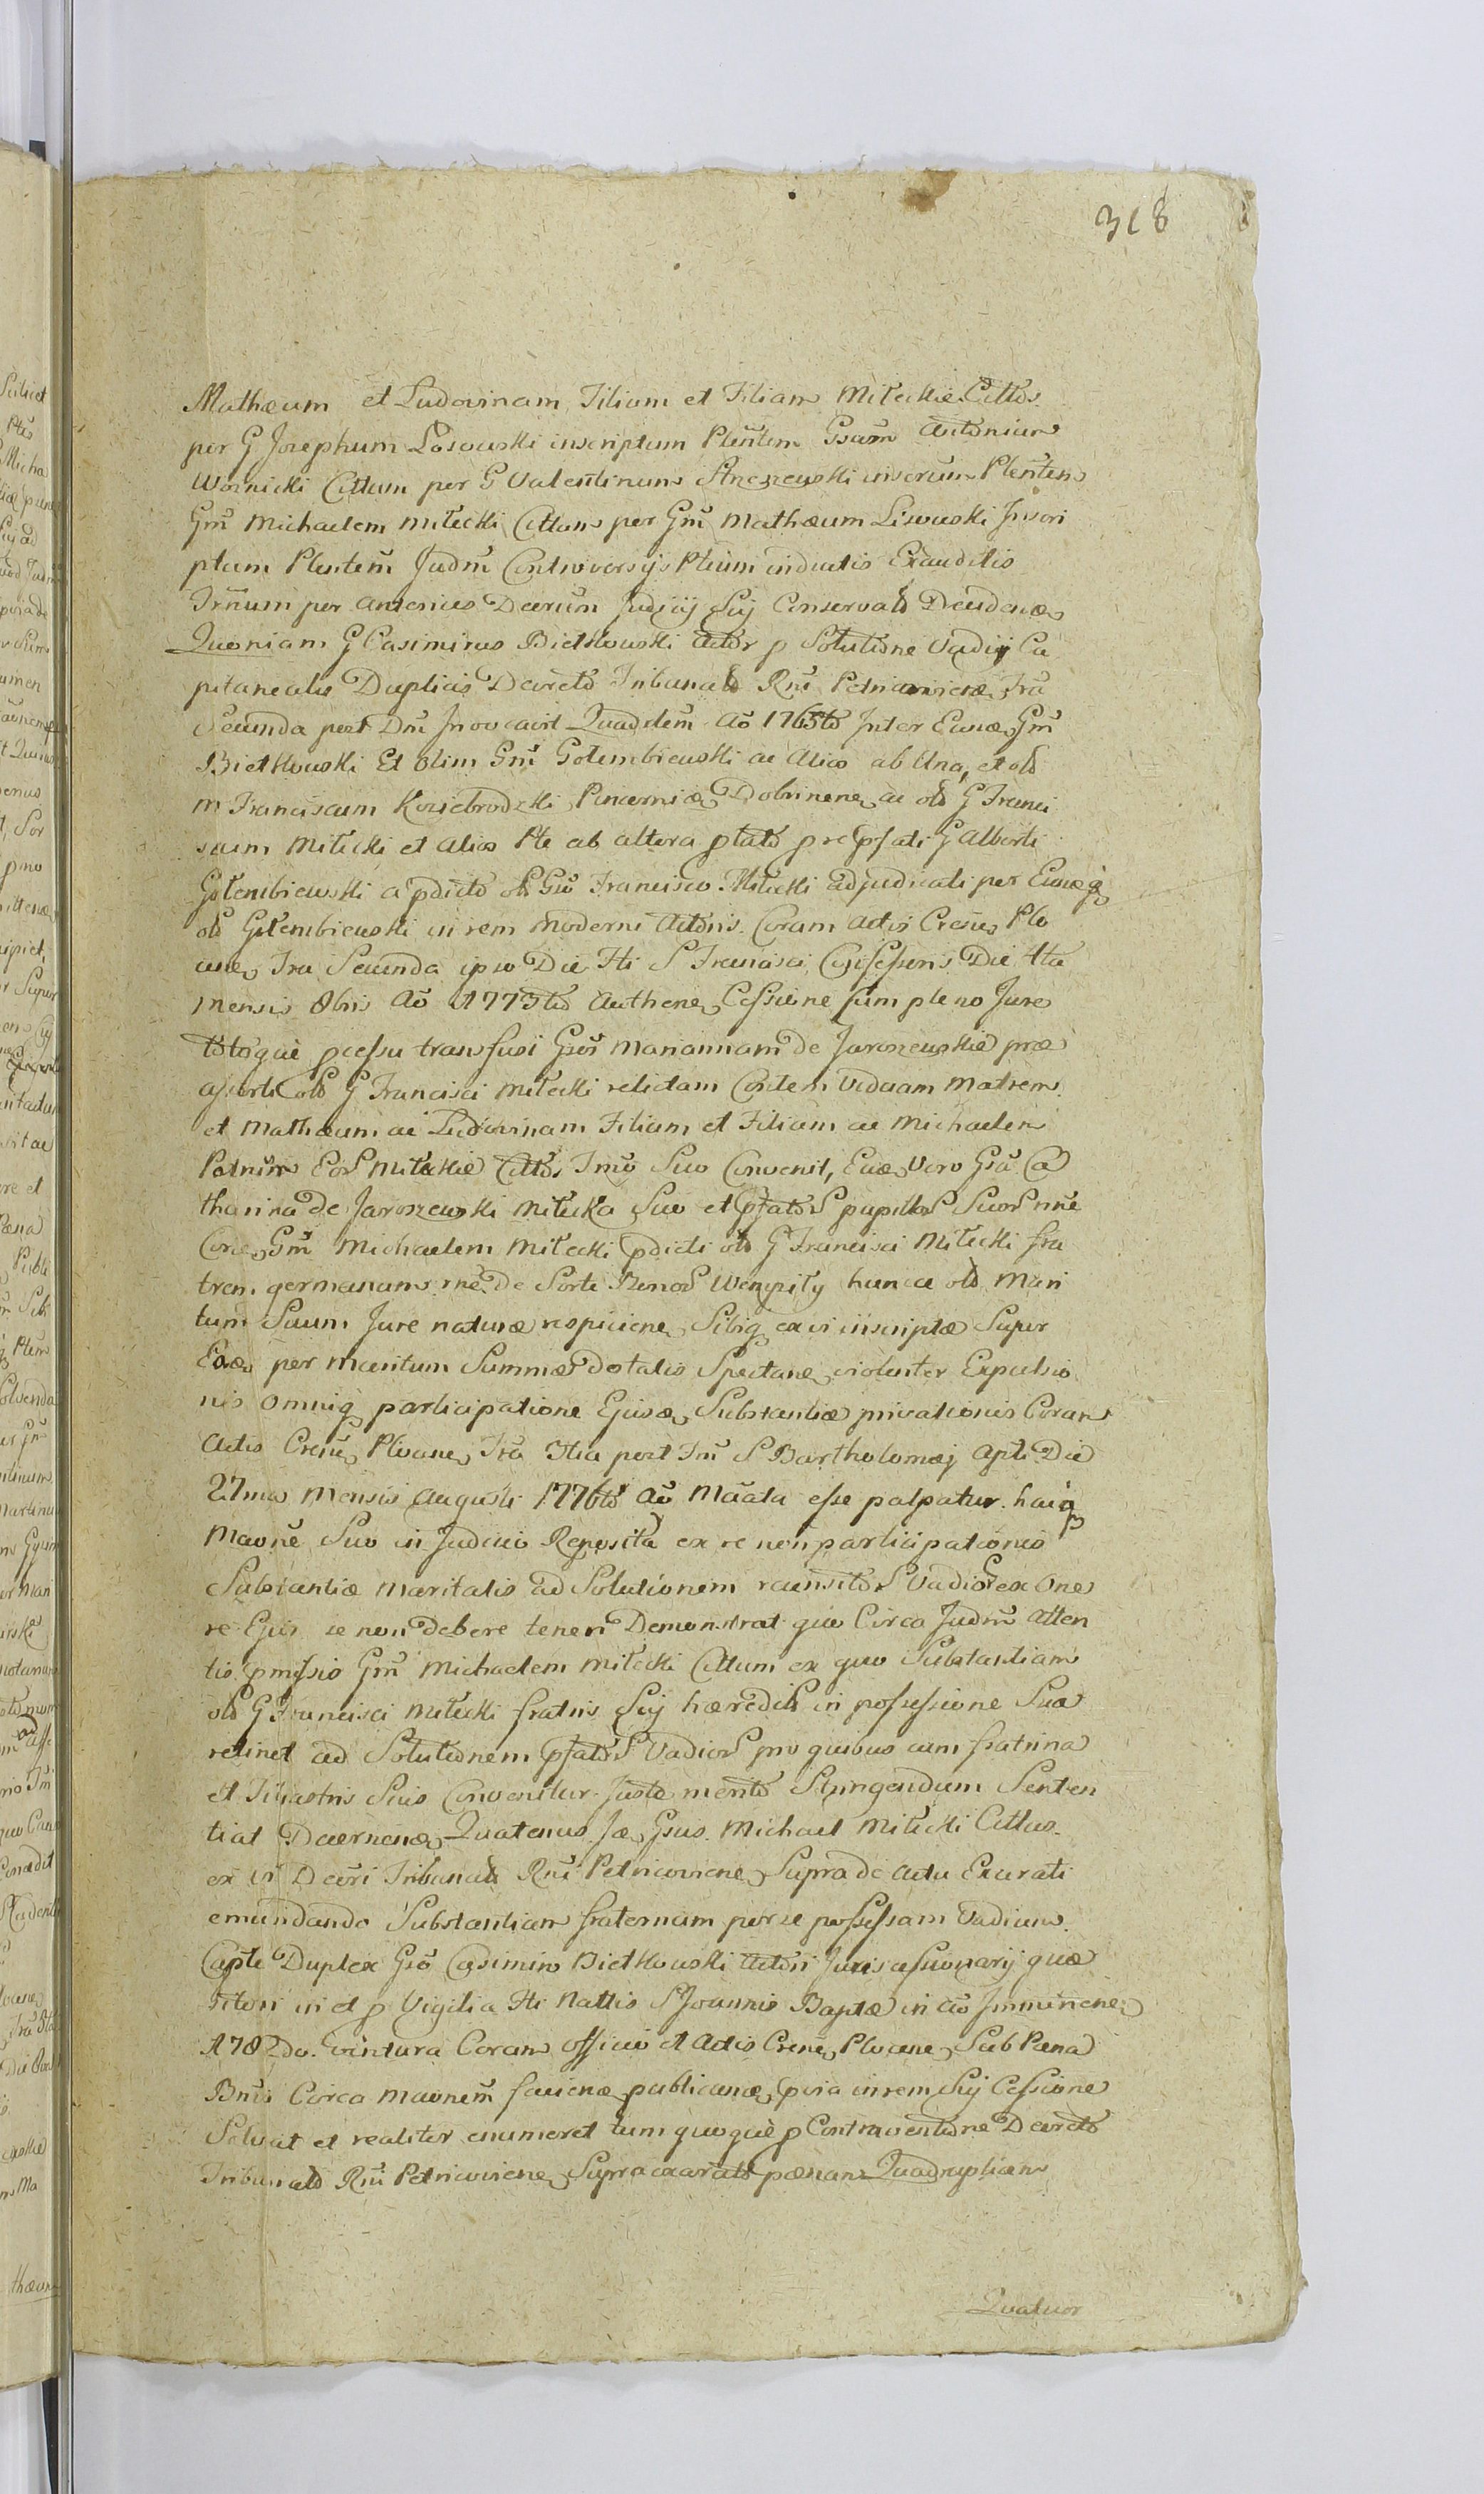 318
Mathæum et Ludovinam Filium et Filiam Miłeckie Cittos.
per G Josephum Łosowski inscriptum Plentem Gsum Antonium
Woźnicki Cittum per G Valentinum inscrum Plentem
Gm̃ Michaelem Miłecki Cittum per Gm̃ Mathæum Lisowski Inscri
ptum Plentem̃ Judm̃ Controversijs Ptium inductis Exauditis
Trm̃um per Anterius Decrum Judicij Sui Conservato Decudene
Quoniam G Casimirus Bietkowski Actor p Solutione Vadij Ca
pitanealis Duplicis Decreto Tribunalis Rni Petricoviense Fra
Secunda post Dm̃ Invocavit Quadlem̃ Ao 1765to Inter Eunde Gm̃
Bietkowski Et olim Gm̃ Gołembiewski ac Alios ab Una, et olo
M Franciscum Kosiebrodzki Pincernia Dobrinene ac olo G Franci
scum Miłecki et alios Pte ab altera plato pre pfati G Alberti
Gołembiewski a pdicto olo Gso Francisco Miłecki adjudicati per Eundeq
olo Gołembiewski in rem moderni Actoris Coram Actis Crens Plo
cene Fra Secunda ipso Die Sti S Francisci Confessoris Die 4ta
mensis 8bris Ao 1773tio Authene Cessione sum pleno Jure
totoque pcessu transfusi Gsos Mariannam de Jaroszewskie præ
asserti olo G Francisci Miłecki relictam Contem Viduam Matrem
et Mathæum ac Ludovinam Filium et Filiam ac Michaelem
Patruum Eor Miłeckie Cittos Trno Suo Convenit, Eade Vero Gsa Ca
tharina de Jaroszewski Miłecka Suo et pfator pupillor Suor nne
Cone Gm̃ Michaelem Miłecki pdicti olo G Francisci Miłecki fra
trem germanum rne de Sorte Bonor Wempiły hancce olo Mari
tum Suum Jure naturæ respiciene Sibiq ex vi inscriptæ Super
Eade per maritum Summæ dotalis Spectane violenter Expulsio
nis omniq participatione Ejusde Substantiæ privationis Coram
Actis Crens Plocane Fra 3tia post Fm̃ S Bartholomæj Apli Die
27ma Mensis Augusti 1776to Ao Maata esse palpatur. hacq
Maone Suo in Judicio Reposita ex re non participationis
Substantiæ maritalis ad Solutionem recensitor Vadior ex One
re Ejus se non debere teneri Demonstrat quo Circa Judm̃ atten
tis pmissis Gm̃ Michaelem Miłecki Cittum ex quo Substantiam
olo G Francisci Miłecki fratris Sui hæredits in possessione Sua
retinet ad Solutionem pfator Vadior pro quibus cum fratrina
et Filiastris Suis Convenitur. Juste merito Stringendum Senten
tiat Decernene Quatenus Jde Gsus. Michael Miłecki Cittus.
ex vi Decri Tribunalis Rni Petricoviene Supra de Actu Exarati
emundando Substantiam fraternam per se possessam Vadium
Capte Duplex Gso Casimiro Bietkowski Actori Juris cessionarij quæ
ritori in et p Vigilia Sti Nattis S Joannis Baptæ in Ao Imminene
1782do. Ventura Coram officio et Actis Crens Plocene Sub Pœna
Bnis Circa maonem̃ faciene publicane pvia in rem Sui Cessione
Solvat et realiter enumeret tum quoque p Contraventione Decreto
Tribunalo Rni Petricoviene Supra exarato pœnam Quadruplicem
Quatuor